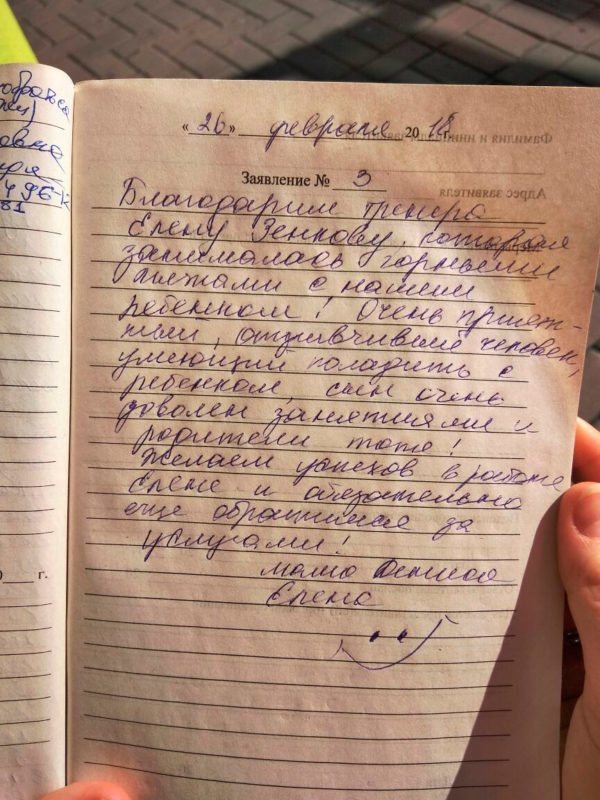 обратился
овна
496
81
г.
« 26 » февраля 2018 г.
Заявление № 3
Благодарим тренера
Елену Зенкову, которая
занималась горными
лыжами с нашим
ребенком! Очень прият-
ный, отзывчивый человек,
умеющий поладить с
ребенком, сын очень
доволен занятиями и
родители тоже!
Желаем успехов в работе
Елене и обязательно
еще обратимся за
услугами!
мама
Елена